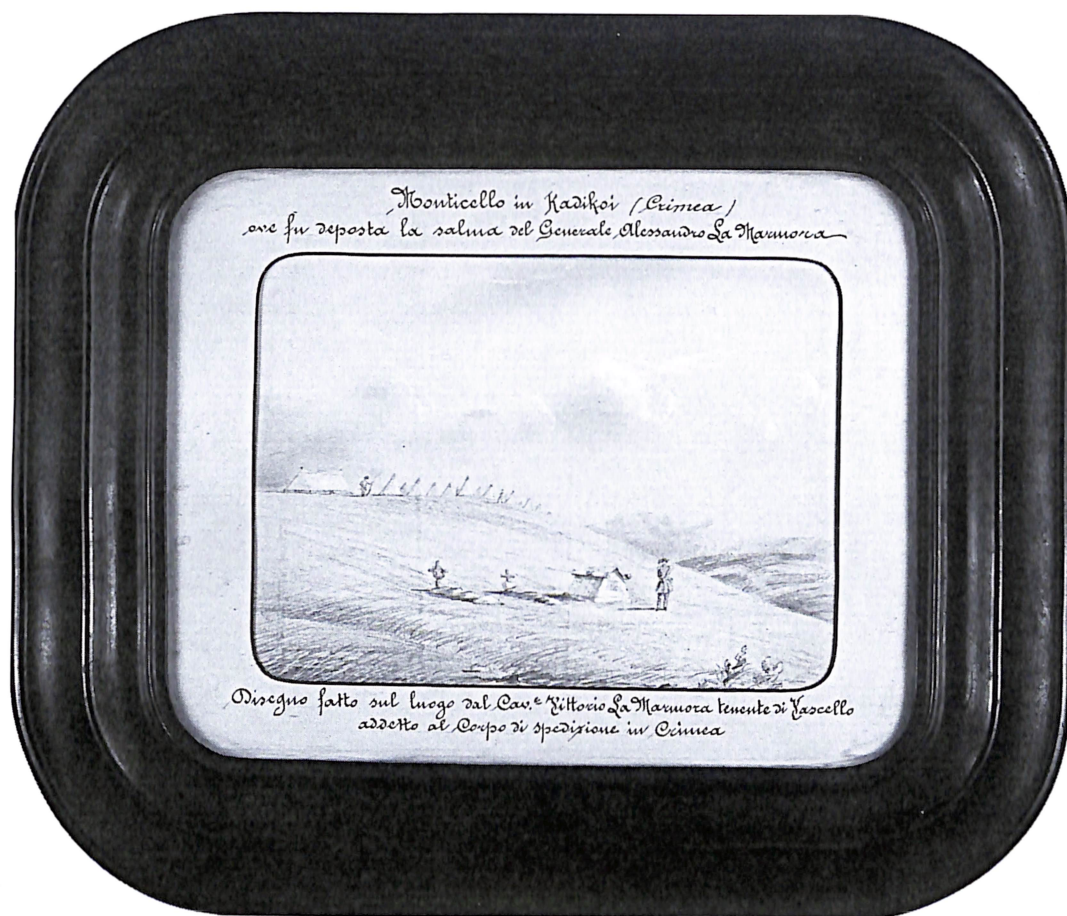 Monticello in Kadikoi (Crimea)
ove fu deposta la salma del Generale Alessandro La Marmora
Disegno fatto sul luogo dal Cav.e Vittorio La Marmora tenente di Vascello
addetto al Corpo di spedizione in Crimea